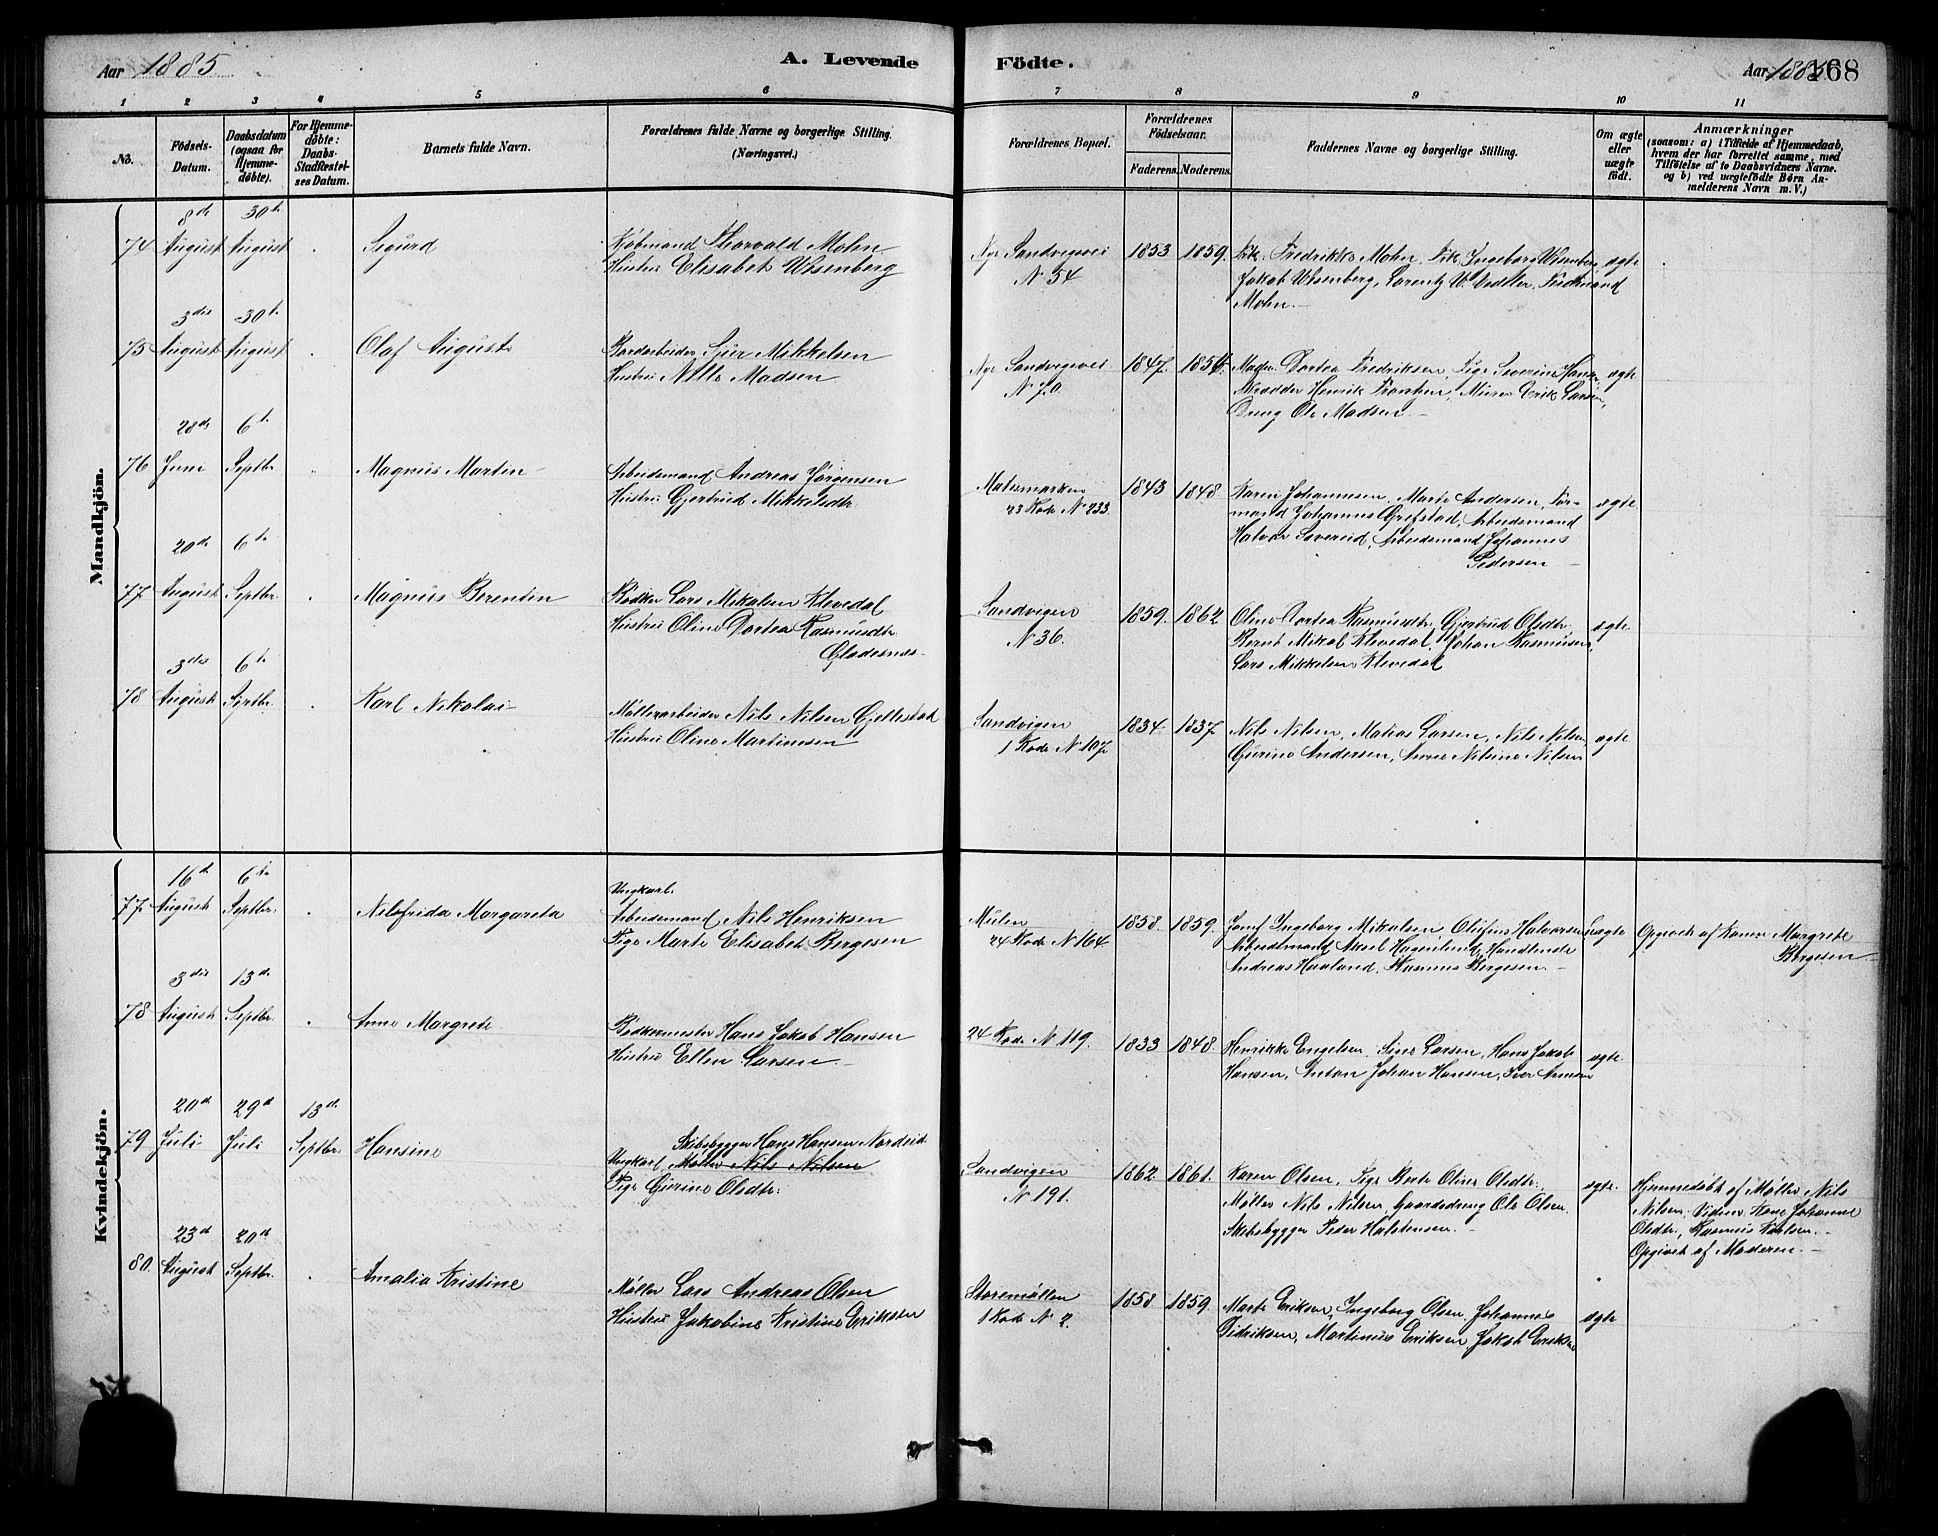 Aar 1885.
A. Levende
Födte.
Aar 1885.
168
1
2
3
4
5
6
7
8
9
10
11
No.
Födsels-
Datum.
Daabsdatum
(ogsaa for
Hjemme-
döbte).
For Hjemme-
döbte:
Daabs-
Stadfæstel-
ses Datum.
Barnets fulde Navn.
Forældrenes fulde Navne og borgerlige Stilling.
(Næringsvei.)
Forældrenes Bopæl.
Forældrenes
Födselsaar.
Faderens.
Moderens.
Faddernes Navne og borgerlige Stilling.
Om ægte
eller
uægte
födt.
Anmærkninger
(saasom: a) i Tilfælde af Hjemmedaab,
hvem der har forrettet samme, med
Tilföielse af to Daabsvidners Navne.
og b) ved uægtefödte Börn An-
melderens Navn m. V.)
Mandkjön.
8de 30te
74 August August Sigurd
Kjøbmand Thorvald Mohn
Hustru Elisabet Wesenberg
Nye Sandvigsvei
N 54
1853 1859.
Frk. Fredrikke Mohn, Frk. Ingeborg Wesenberg,
Jakob Wesenberg, Lorentz W. Vedeler, Ferdinand
Mohn.
ægte
3die 30te
75 August August Olaf August
Bordarbeider Sjur Mikkelsen
Hustru Nille Madsen
Nye Sandvigsvei
N 70.
1847. 1854.
Madm. Dortea Fredriksen, Pige Severine Hansen,
Skrædder Henrik Torsten, Murer Erik Larsen,
Dreng Ole Madsen
ægte
28de 6te
76 Juni Septbr. Magnus Martin
Arbeidsmand Andreas Jørgensen
Hustru Gjertrud Mikkelsdtr.
Møhmarken
23 Rode N 233.
1843 1848.
Karen Johannesen, Marte Andersen, For-
mand Johannes Grefstad, Arbeidsmand
Halvor Sævereid, Arbeidsmand Johannes
Pedersen
ægte
20de 6te
77 August Septbr. Magnus Berentin
Bødker Lars Mikalsen Klevedal
Hustru Oline Dortea Rasmusdtr.
Gladesnes
Sandvigen
N 36.
1859. 1862
Oline Dortea Rasmusdtr. Gjertrud Olsdtr.
Bernt Mikal Klevedal, Johan Rasmusen,
Lars Mikkelsen Klevedal
ægte
3die 6te
78 August Septbr. Karl Nikolai
Møllerarbeider Nils Nilsen Gjellestad
Hustru Oline Martinusen
Sandvigen
1 Rode N 107.
1834 1837.
Nils Nilsen, Matias Larsen, Nils Nilsen,
Gurine Andersen, Anne Nilsine Nilsen
ægte
Kvindekjön.
16de 6te
77. August Septbr. Nilsfrida Margareta
Ungkarl.
Arbeidsmand Nils Henriksen
Pige Marte Elisabet Børgesen
Mulen
24 Rode N 164
1858. 1859.
Jomf Ingeborg Mikalsen, Olufine Halvorsen
Arbeidsmand Aksel Hagenlund, Handlende
Andreas Haaland, Rasmus Børgesen
uægte
Opgivet af Konen Margrete
Børgesen
3die 13de
78 August Septbr. Anne Margrete
Bødkermester Hans Jakob Hansen
Hustru Ellen Larsen
24 Rode N 119.
1833 1848.
Henrikke Engelsen, Sine Larsen, Hans Jakob
Hansen, Anton Johan Hansen, Iver
ægte
20de 29de 13de
79 Juli Juli Septbr. Hansine
Skibsbygger Hans Hansen Nordeid
Ungkarl Møller Nils Nilsen
Pige Gurine Olsdtr.
Sandvigen
N 191.
1862 1861.
Karen Olsen, Pige Berte Oline Olsdtr.,
Møller Nils Nilsen, Gaardsdreng Ole Olsen,
Skibsbygger Peder Halstensen
ægte.
Hjemmedøbt af Møller Nils
Nilsen, Vidner Kone Johanne
Olsdtr., Rasmus Nilsen.
Opgivet af Moderen.
23de 20de
80. August Septbr. Amalia Kristine
Møller Lars Andreas Olsen
Hustru Jakobine Kristine Eriksen
Storemøllen
1 Rode N 2.
1858 1859.
Marte Eriksen, Ingeborg Olsen, Johannes
Didriksen, Martinus Eriksen, Jakob Eriksen
ægte